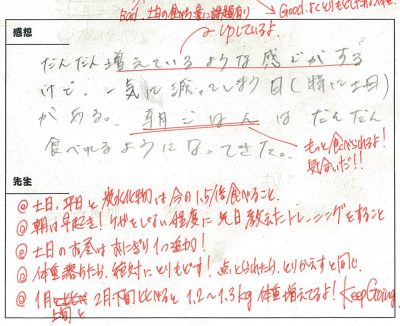 Bad 土日の食べる量に課題有り
Good よくとりもどした
感想
upしているよ。
だんだん増えているような感じがする
けど、一気に減ってしまう日(特に土日)
がある。朝ごはんはだんだん
食べれるようになってきた。
もっと食べられるよ!
気合いだ!!
先生
@ 土日、平日と炭水化物は今の1.5倍食べること。
@ 朝は早起き! ケガをしない程度に先日教えたトレーニングをすること
@ 土日のお昼はおにぎり1つ追加!
@ 体重落ちたら、絶対にとりもどす! 点とられたら、とりかえすと同じ。
@ 1月上旬と2月下旬比べると1.2〜1.3kg体重増えてるよ! Keep Going